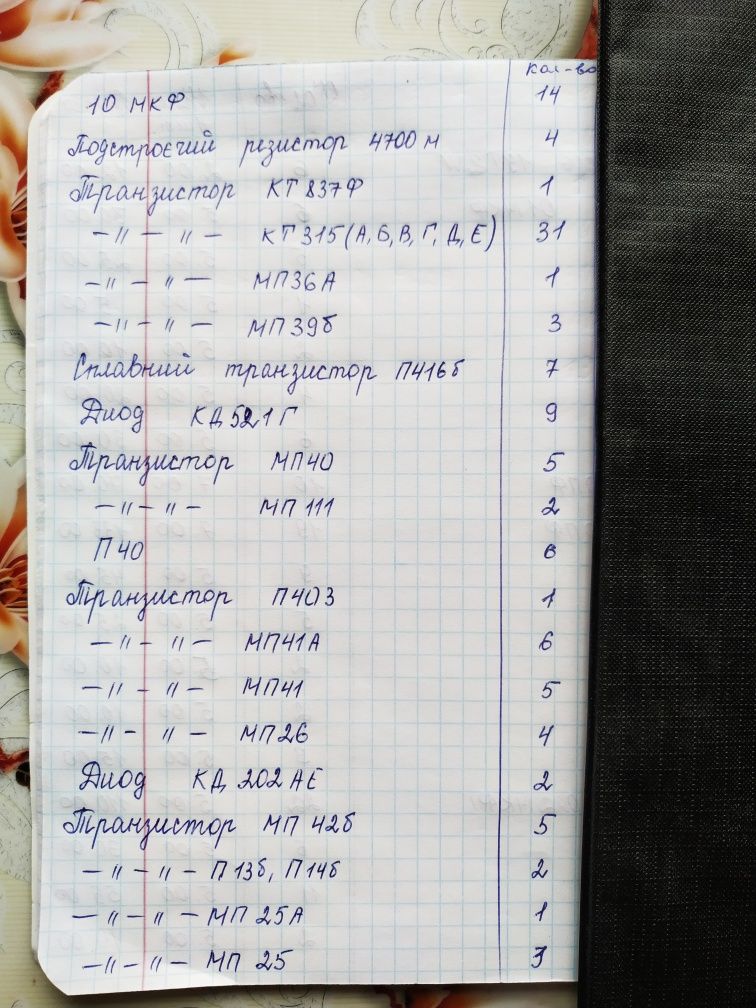 кол-во
10 мкФ 14
Подстроєчий резистор 4700м 4
Транзистор КТ837Ф 1
–〃–〃– КТ315(А,Б,В,Г,Д,Е) 31
–〃–〃– МП36А 1
–〃–〃– МП39б 3
Сплавний транзистор П416б 7
Диод КД521Г 9
Транзистор МП40 5
–〃–〃– МП111 2
П40 6
Транзистор П403 1
–〃–〃– МП41А 6
–〃–〃– МП41 5
–〃–〃– МП26 4
Диод КД202АЕ 2
Транзистор МП42б 5
–〃–〃– П13б, П14б 2
–〃–〃– МП25А 1
–〃–〃– МП25 3